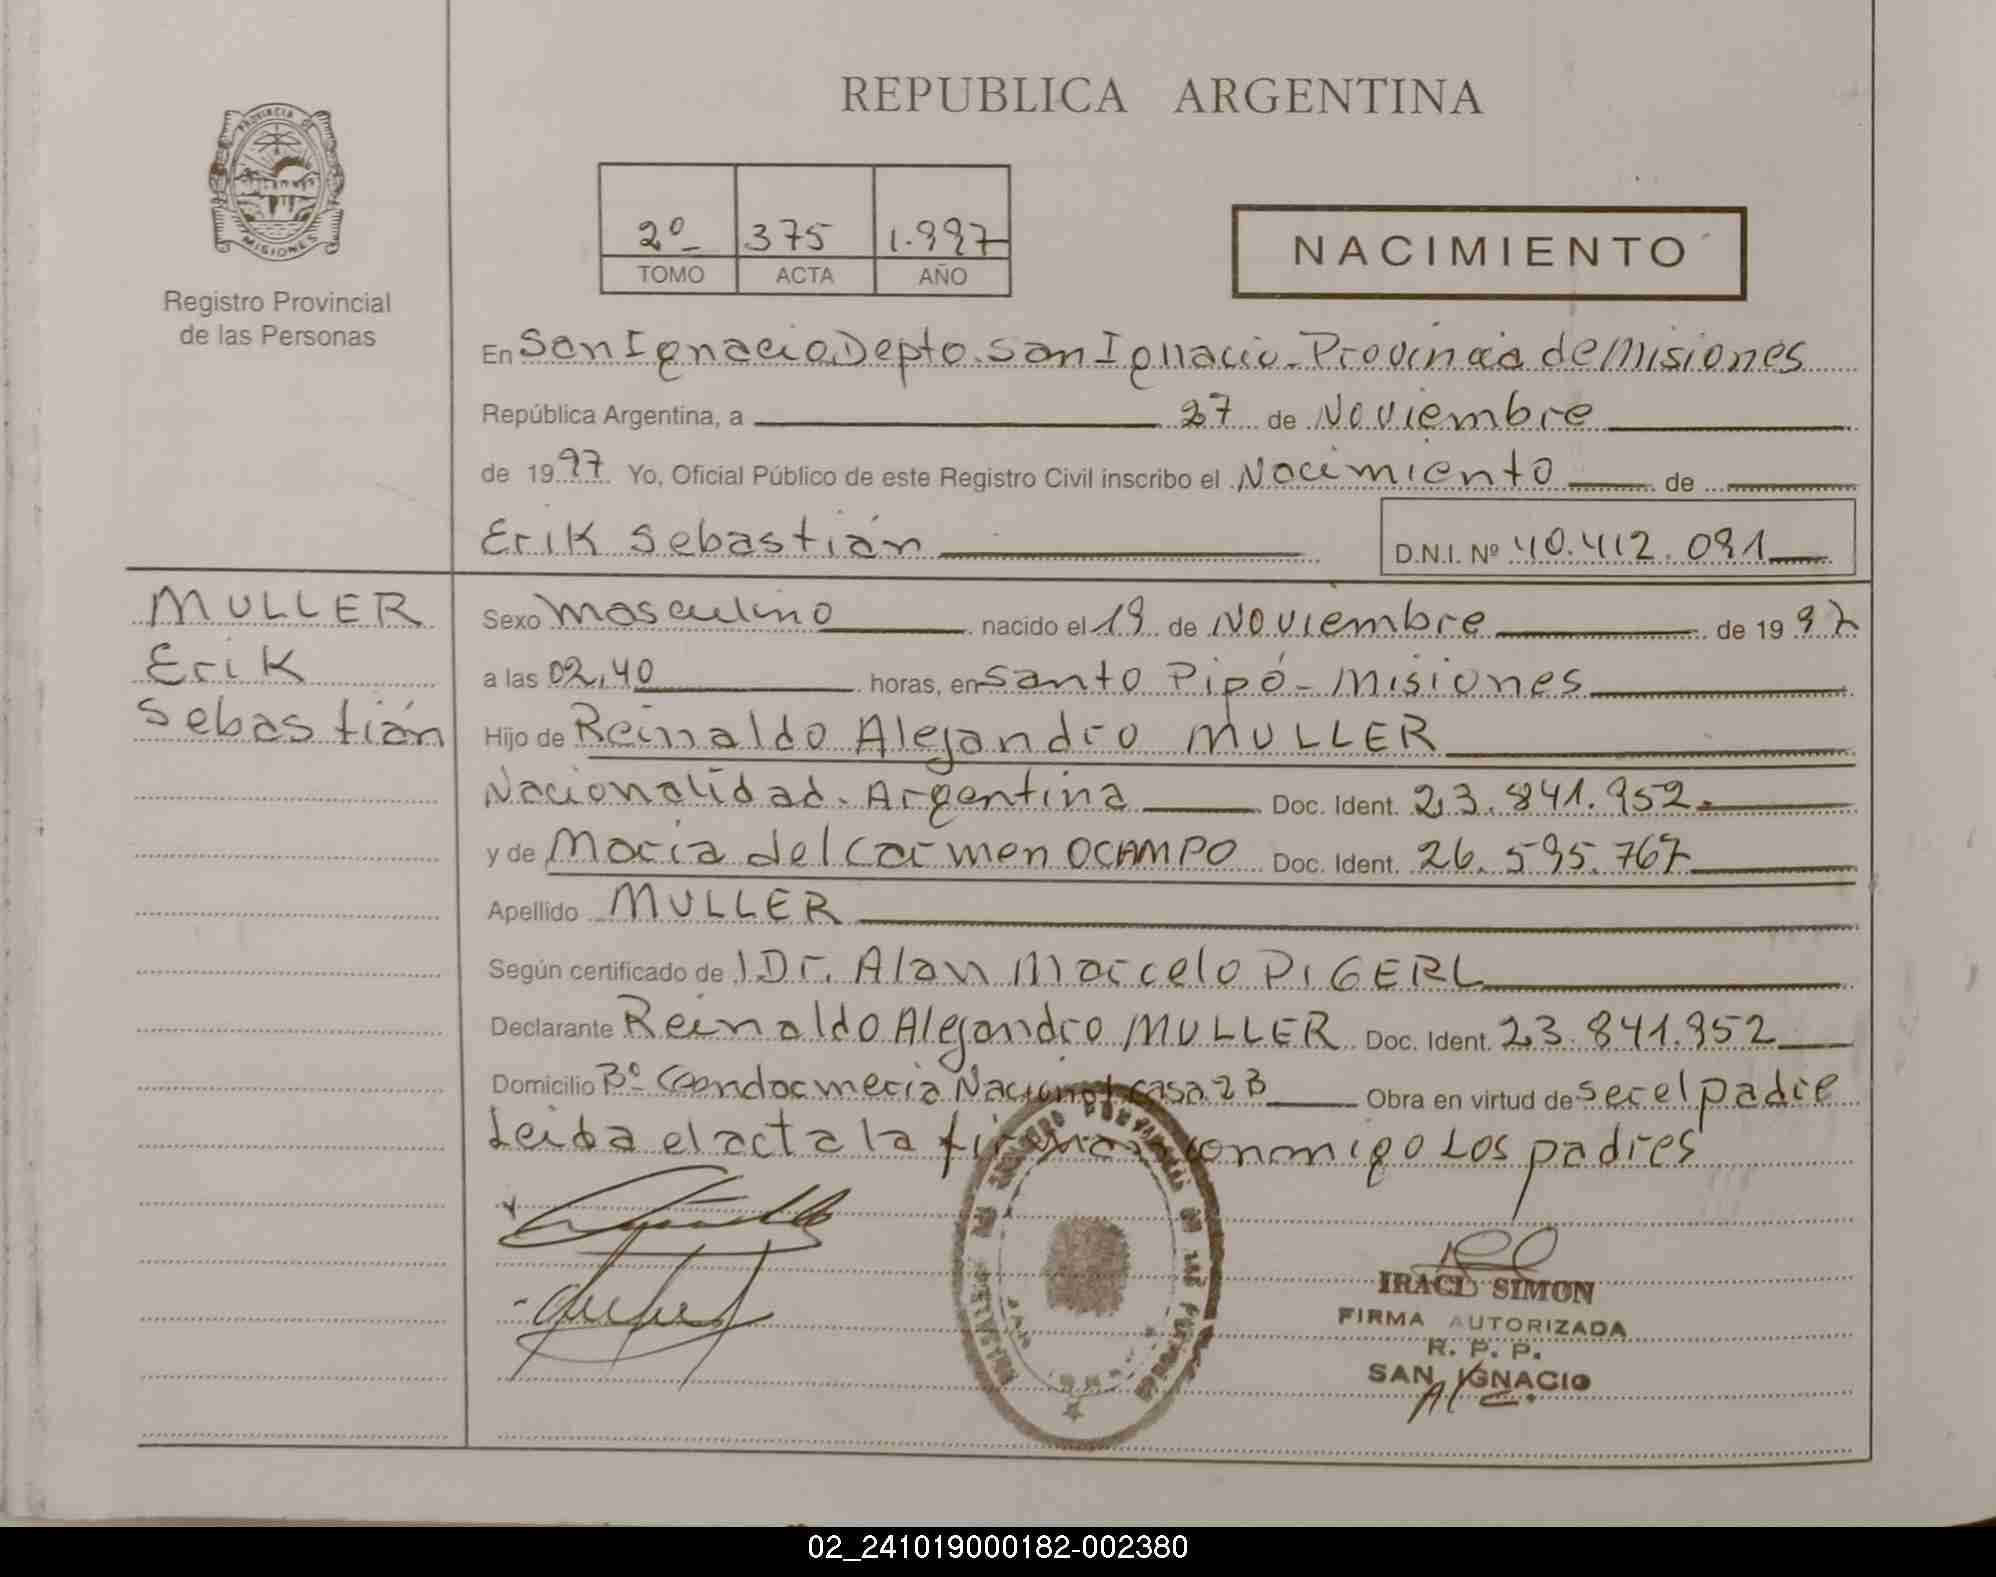 REPUBLICA ARGENTINA
PROVINCIA DE
MISIONES
Registro Provincial
de las Personas
2º 375 1.997
TOMO ACTA AÑO
NACIMIENTO
En San Ignacio, Depto. San Ignacio - Provincia de Misiones
República Argentina, a 27 de Noviembre
de 1997 Yo, Oficial Público de este Registro Civil inscribo el Nacimiento de
Erik Sebastián D.N.I. Nº 40.412.091
MULLER
Erik
Sebastián
Sexo Masculino nacido el 19 de Noviembre de 1997
a las 02,40 horas, en Santo Pipó - Misiones
Hijo de Reinaldo Alejandro MULLER
Nacionalidad. Argentina Doc. Ident. 23.841.952.
y de María del Carmen OCAMPO Doc. Ident. 26.595.767
Apellido MULLER
Según certificado de Dr. Alan Marcelo PIGERL
Declarante Reinaldo Alejandro MULLER Doc. Ident. 23.841.952
Domicilio Bº Gendarmería Nacional casa 2B Obra en virtud de ser el padre
Leída el acta la firman conmigo Los padres
IRACI SIMON
FIRMA AUTORIZADA
R. P. P.
SAN IGNACIO
02_241019000182-002380